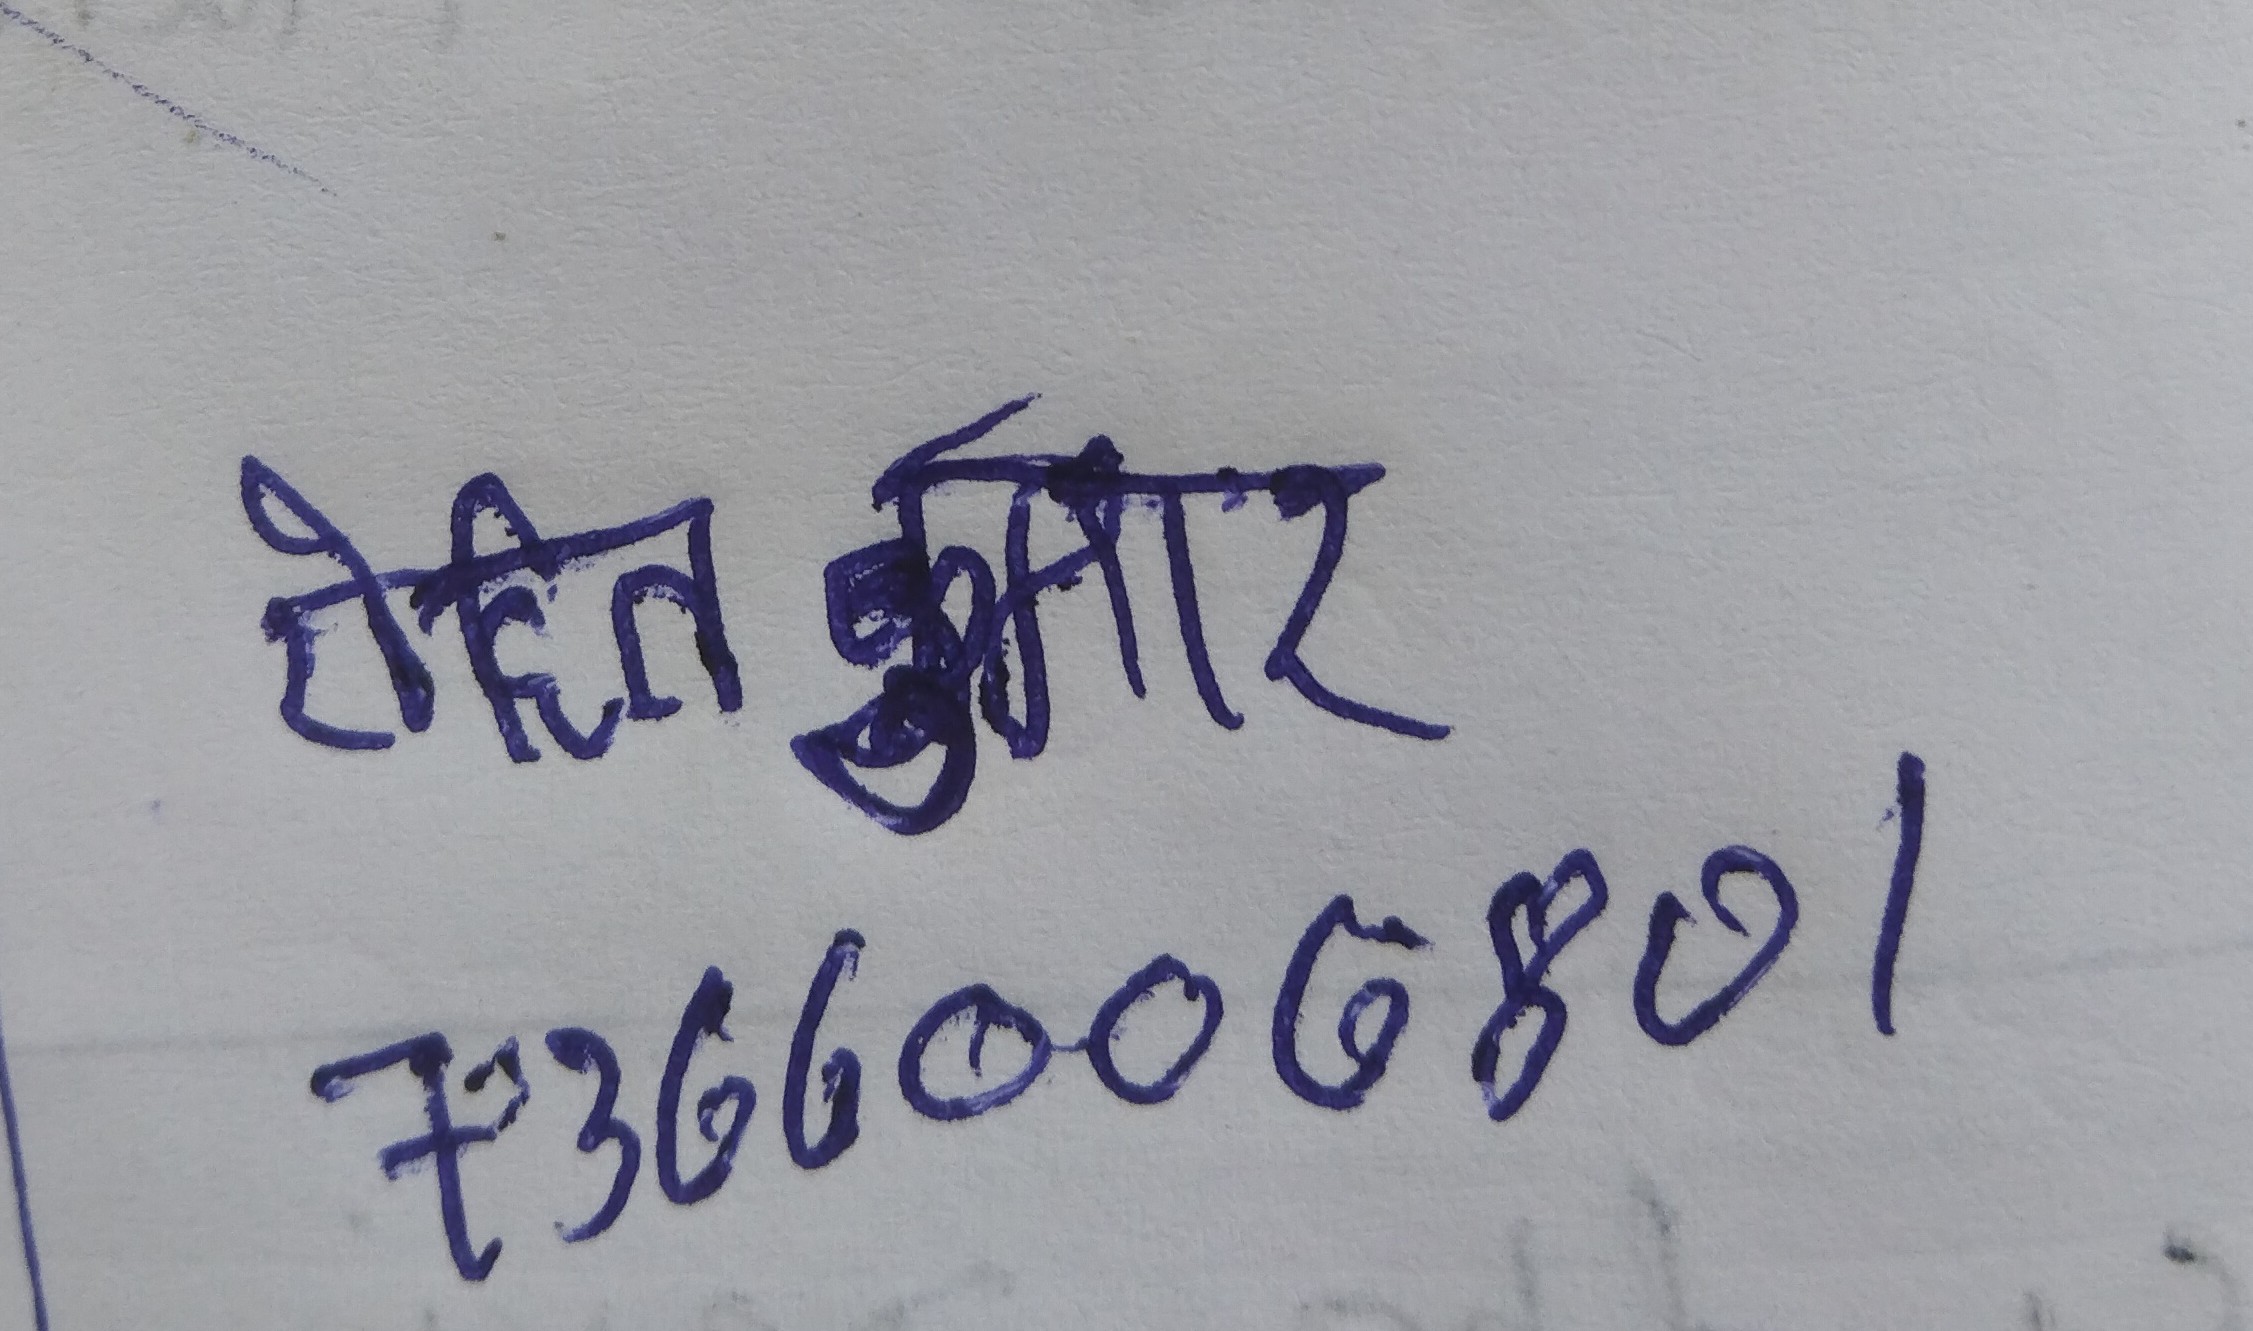 रोहित कुमार
7366006801